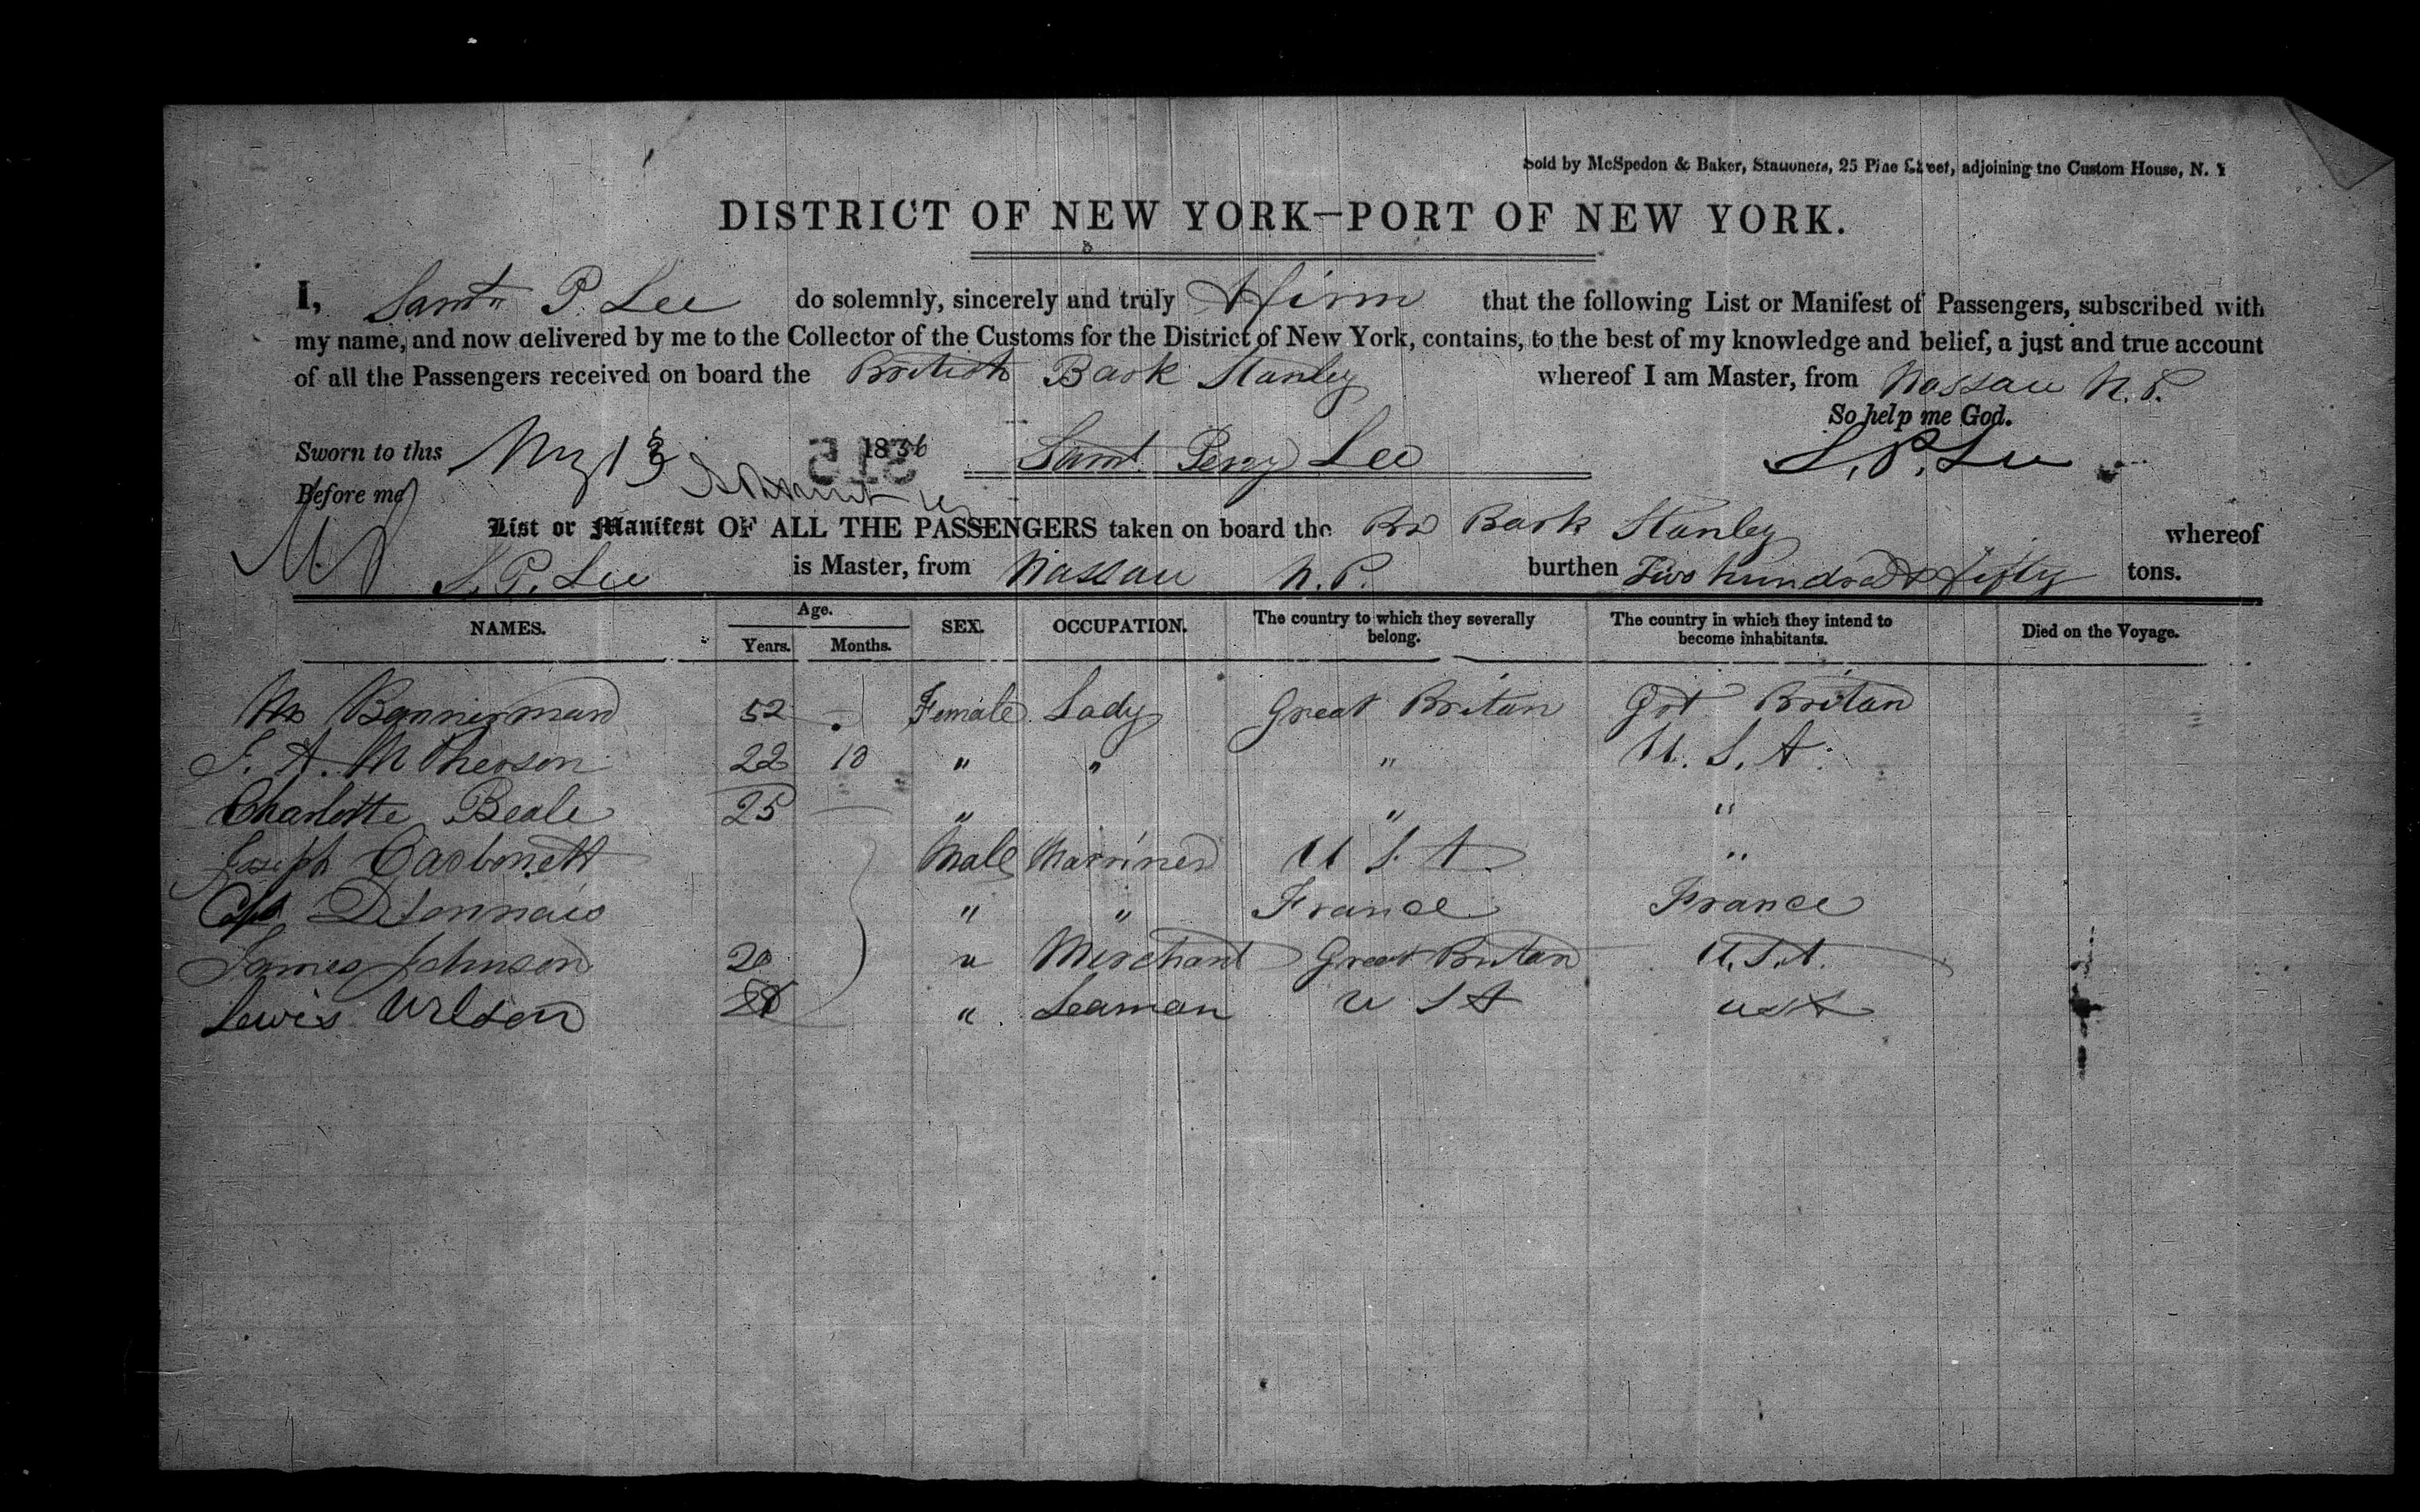 Sold by McSpedon & Baker, Stationers, 25 Pine Street, adjoining the Custom House, N. Y
DISTRICT OF NEW YORK—PORT OF NEW YORK.
I, Saml P. Lee do solemnly, sincerely and truly Affirm that the following List or Manifest of Passengers, subscribed with
my name, and now delivered by me to the Collector of the Customs for the District of New York, contains, to the best of my knowledge and belief, a just and true account
of all the Passengers received on board the British Bark Stanley whereof I am Master, from Nassau N.P.
So help me God.
Sworn to this 13 1856 Saml Percy Lee S. P. Lee
515
Before me
List or Manifest OF ALL THE PASSENGERS taken on board the Br Bark Stanley whereof
S. P. Lee is Master, from Nassau N. P. burthen Two hundred & fifty tons.
NAMES. Age. Years. Months. SEX. OCCUPATION. The country to which they severally belong. The country in which they intend to become inhabitants. Died on the Voyage.
Mrs Bannerman 52 - Female Lady Great Britan Grt Britan
J. A. McPherson 22 10 " " " U. S. A.
Charlotte Beale 25 — " " "
Joseph Carbonett Male Marriner U S A "
Capt " " France France
James Johnson 20 " Merchant Great Britan U.S.A.
Lewis Wilson " Seaman U S A U S A